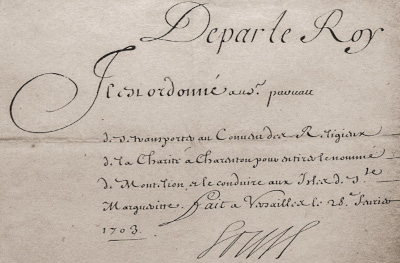 De par le Roy
Il est ordonné au Sr. paveau
de se transporter au Convent des Religieux
de la Charité a Charenton pour en tirer le nommé
de Montlion, et le conduire aux Isles de Ste
Margueritte. Fait a Versailles le 28e. fevrier
1703.
Louis